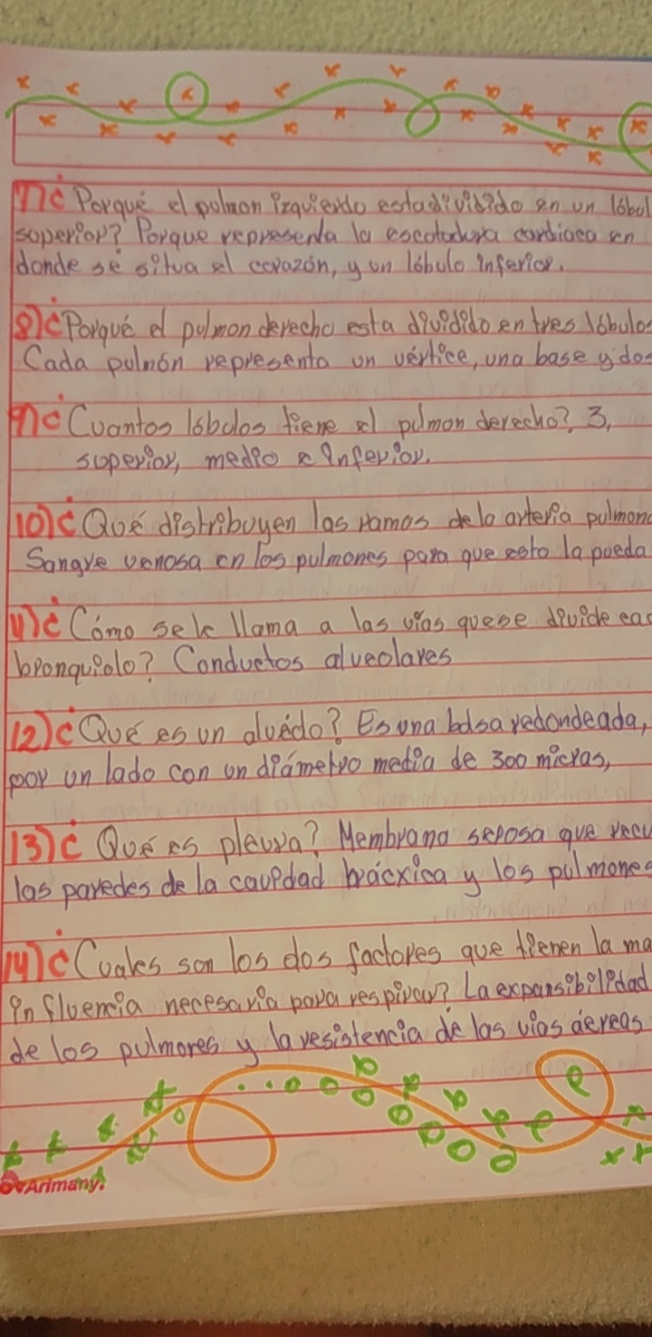 7)¿Porqué el pulmon izquierdo estadividido en un lóbul
superior? Porque representa la escotadura cardiaca en
donde se situa el corazón, y un lóbulo inferior.
8)¿Porqué el pulmon derecho esta dividido en tres lóbulos
Cada pulmón representa un vértice, una base y dos
9)¿Cuantos lóbulos tiene el pulmon derecho?, 3,
superior, medio e inferior.
10)¿Qué distribuyen las ramas de la arteria pulmona
Sangre venosa en los pulmones para que esta la pueda
11)¿Cómo sele llama a las vías quese divide cad
bronquiolo? Conductos alveolares
12)¿Qué es un alvéolo? Es una bolsa redondeada,
por un lado con un diámetro media de 300 micras,
13)¿Qué es pleura? Membrana serosa que recu
las paredes de la cavidad torácxica y los pulmones
14)¿Cuales son los dos factores que tienen la ma
influencia necesaria para respirar? La expansibilidad
de los pulmores y la resistencia de las vias áereas
Arimany